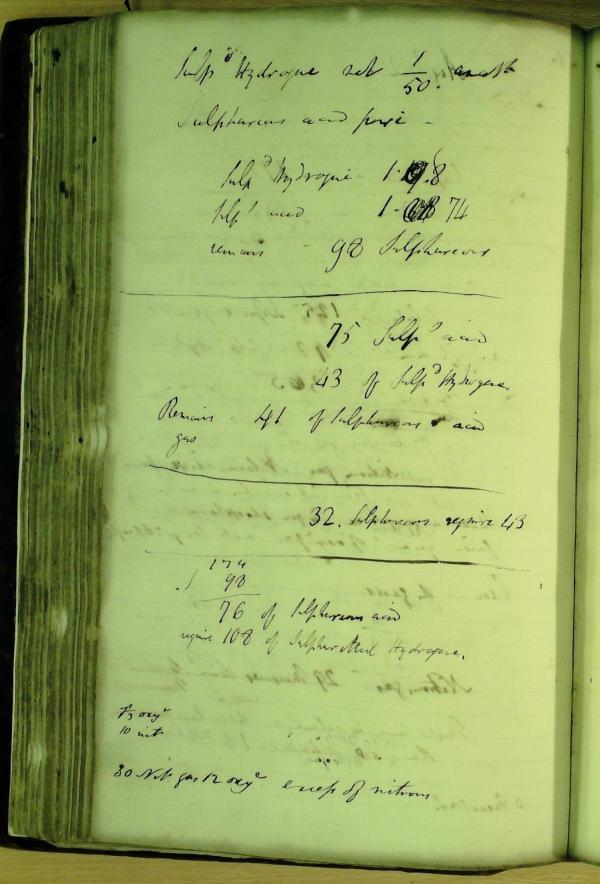 Sulp^d Hydrogene not 1/50.
Sulphureous acid pure -
Sulp^d Hydrogene - 1·8
Sulp^s acid 1- 74
remains - 98 Sulphureous
75 Sulp^s acid
43 of Sulp^d Hydrogene
Remains - 41 of Sulphureous acid
gas
32. Sulphureous require 43
174
98
76 of Sulphureous acid
require 108 of Sulphuretted Hydrogene.
oxy^e
10 nit
30 Nit. gas 12 oxy^e excess of nitrous